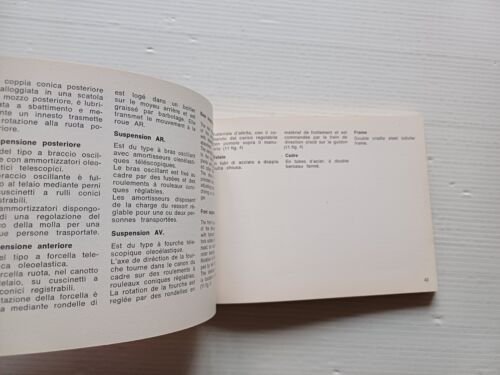 coppia conica posteriore
alloggiata in una scatola
mozzo posteriore, è lubri-
ata a sbattimento e me-
nte un innesto trasmette
alla ruota po-
eriore.
spensione posteriore
el tipo a braccio oscil-
con ammortizzatori oleo-
ici telescopici.
oscillante è ful-
al telaio mediante perni
cuscinetti a rulli conici
registrabili.
ammortizzatori dispongo-
di una regolazione del
della molla per una
e persone trasportate.
spensione anteriore
el tipo a forcella tele-
oleoelastica.
forcella ruota, nel canotto
telaio, su cuscinetti a
conici registrabili.
otazione della forcella è
mediante rondelle di
est logé dans un boîtier
sur le moyeu arrière et est
graissé par barbotage. Elle
transmet le mouvement à la
roue AR.
Suspension AR.
Est du type à bras oscillant
avec amortisseurs oléoélasti-
ques télescopiques.
Le bras oscillant est fixé au
cadre par des fusées et des
roulements à rouleaux coni-
ques réglables.
Les amortisseurs disposent
de la charge du ressort ré-
glable pour une ou deux per-
sonnes transportées.
Suspension AV.
Est du type à fourche téle-
scopique oleoélastique.
L'axe de direction de la four-
che tourne dans le canon du
cadre sur des roulements à
rouleaux coniques réglables.
La rotation de la fourche est
reglée par des rondelles en
materiale d'attrito, con il co-
mando del carico regolabile
con pomolo sopra il manu-
brio (11 fig. 4)
Telaio
In tubi di acciaio a doppia
culla chiusa.
matériel de frottement et est
commandée par le frein de
direction placé sur le guidon
(11 fig. 4)
Cadre
En tubes d'acier, à double
berceau fermé.
Frame
Double cradle steel tubular
frame.